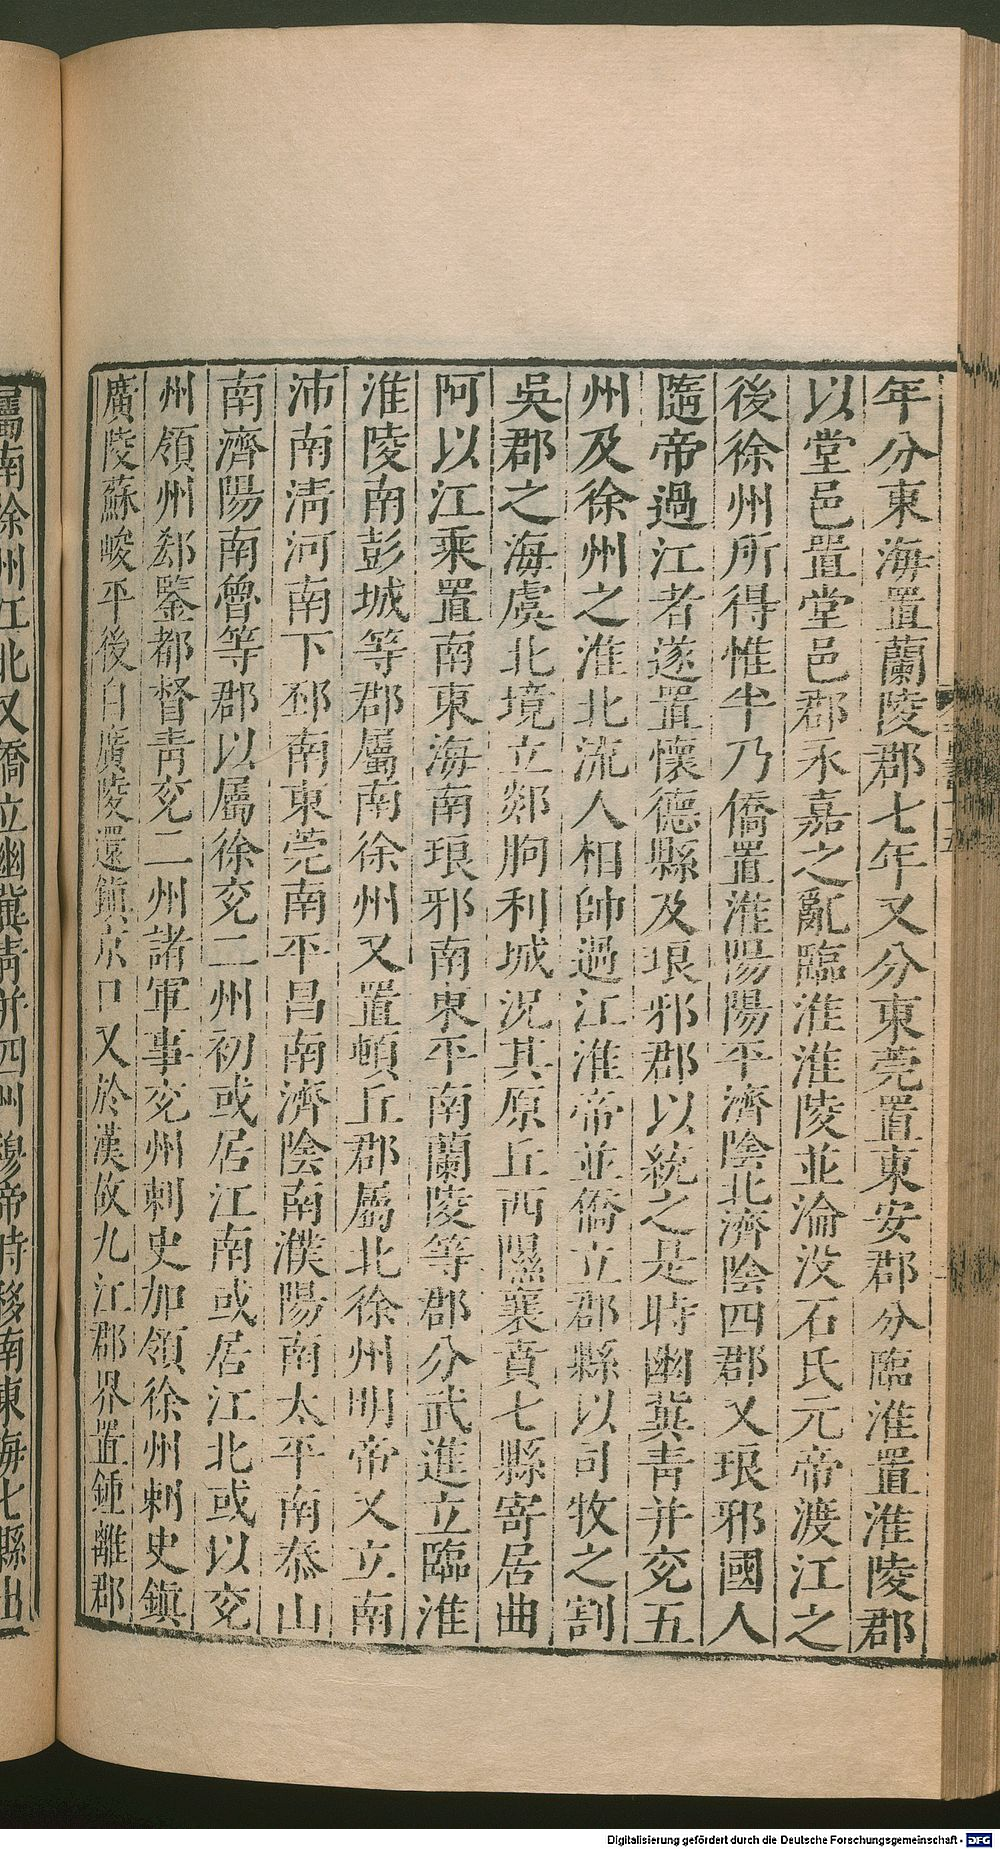 年分東海置蘭陵郡七年又分東莞置東安郡分臨淮置淮陵郡
以堂邑置堂邑郡永嘉之亂臨淮淮陵並淪沒石氏元帝渡江之
後徐州所得惟半乃僑置淮陽陽平濟陰北濟陰四郡又琅邪國人
隨帝過江者遂置懷德縣及琅邪郡以統之是時幽冀青并兖五
州及徐州之淮北流人相帥過江淮帝並僑立郡縣以司牧之割
吳郡之海虞北境立郯朐利城況其原丘西隰襄賁七縣寄居曲
阿以江乘置南東海南琅邪南東平南蘭陵等郡分武進立臨淮
淮陵南彭城等郡屬南徐州又置頓丘郡屬北徐州明帝又立南
沛南清河南下邳南東莞南平昌南濟陰南濮陽南太平南泰山
南濟陽南魯等郡以屬徐兖二州初或居江南或居江北或以兖
州領州郄鑒都督青兖二州諸軍事兖州刺史加領徐州刺史鎮
廣陵蘇峻平後自廣陵還鎮京口又於漢故九江郡界置鍾離郡
屬南徐州江北又僑立幽冀青并四州穆帝時移南東海七縣出
Digitalisierung gefördert durch die Deutsche Forschungsgemeinschaft - DFG